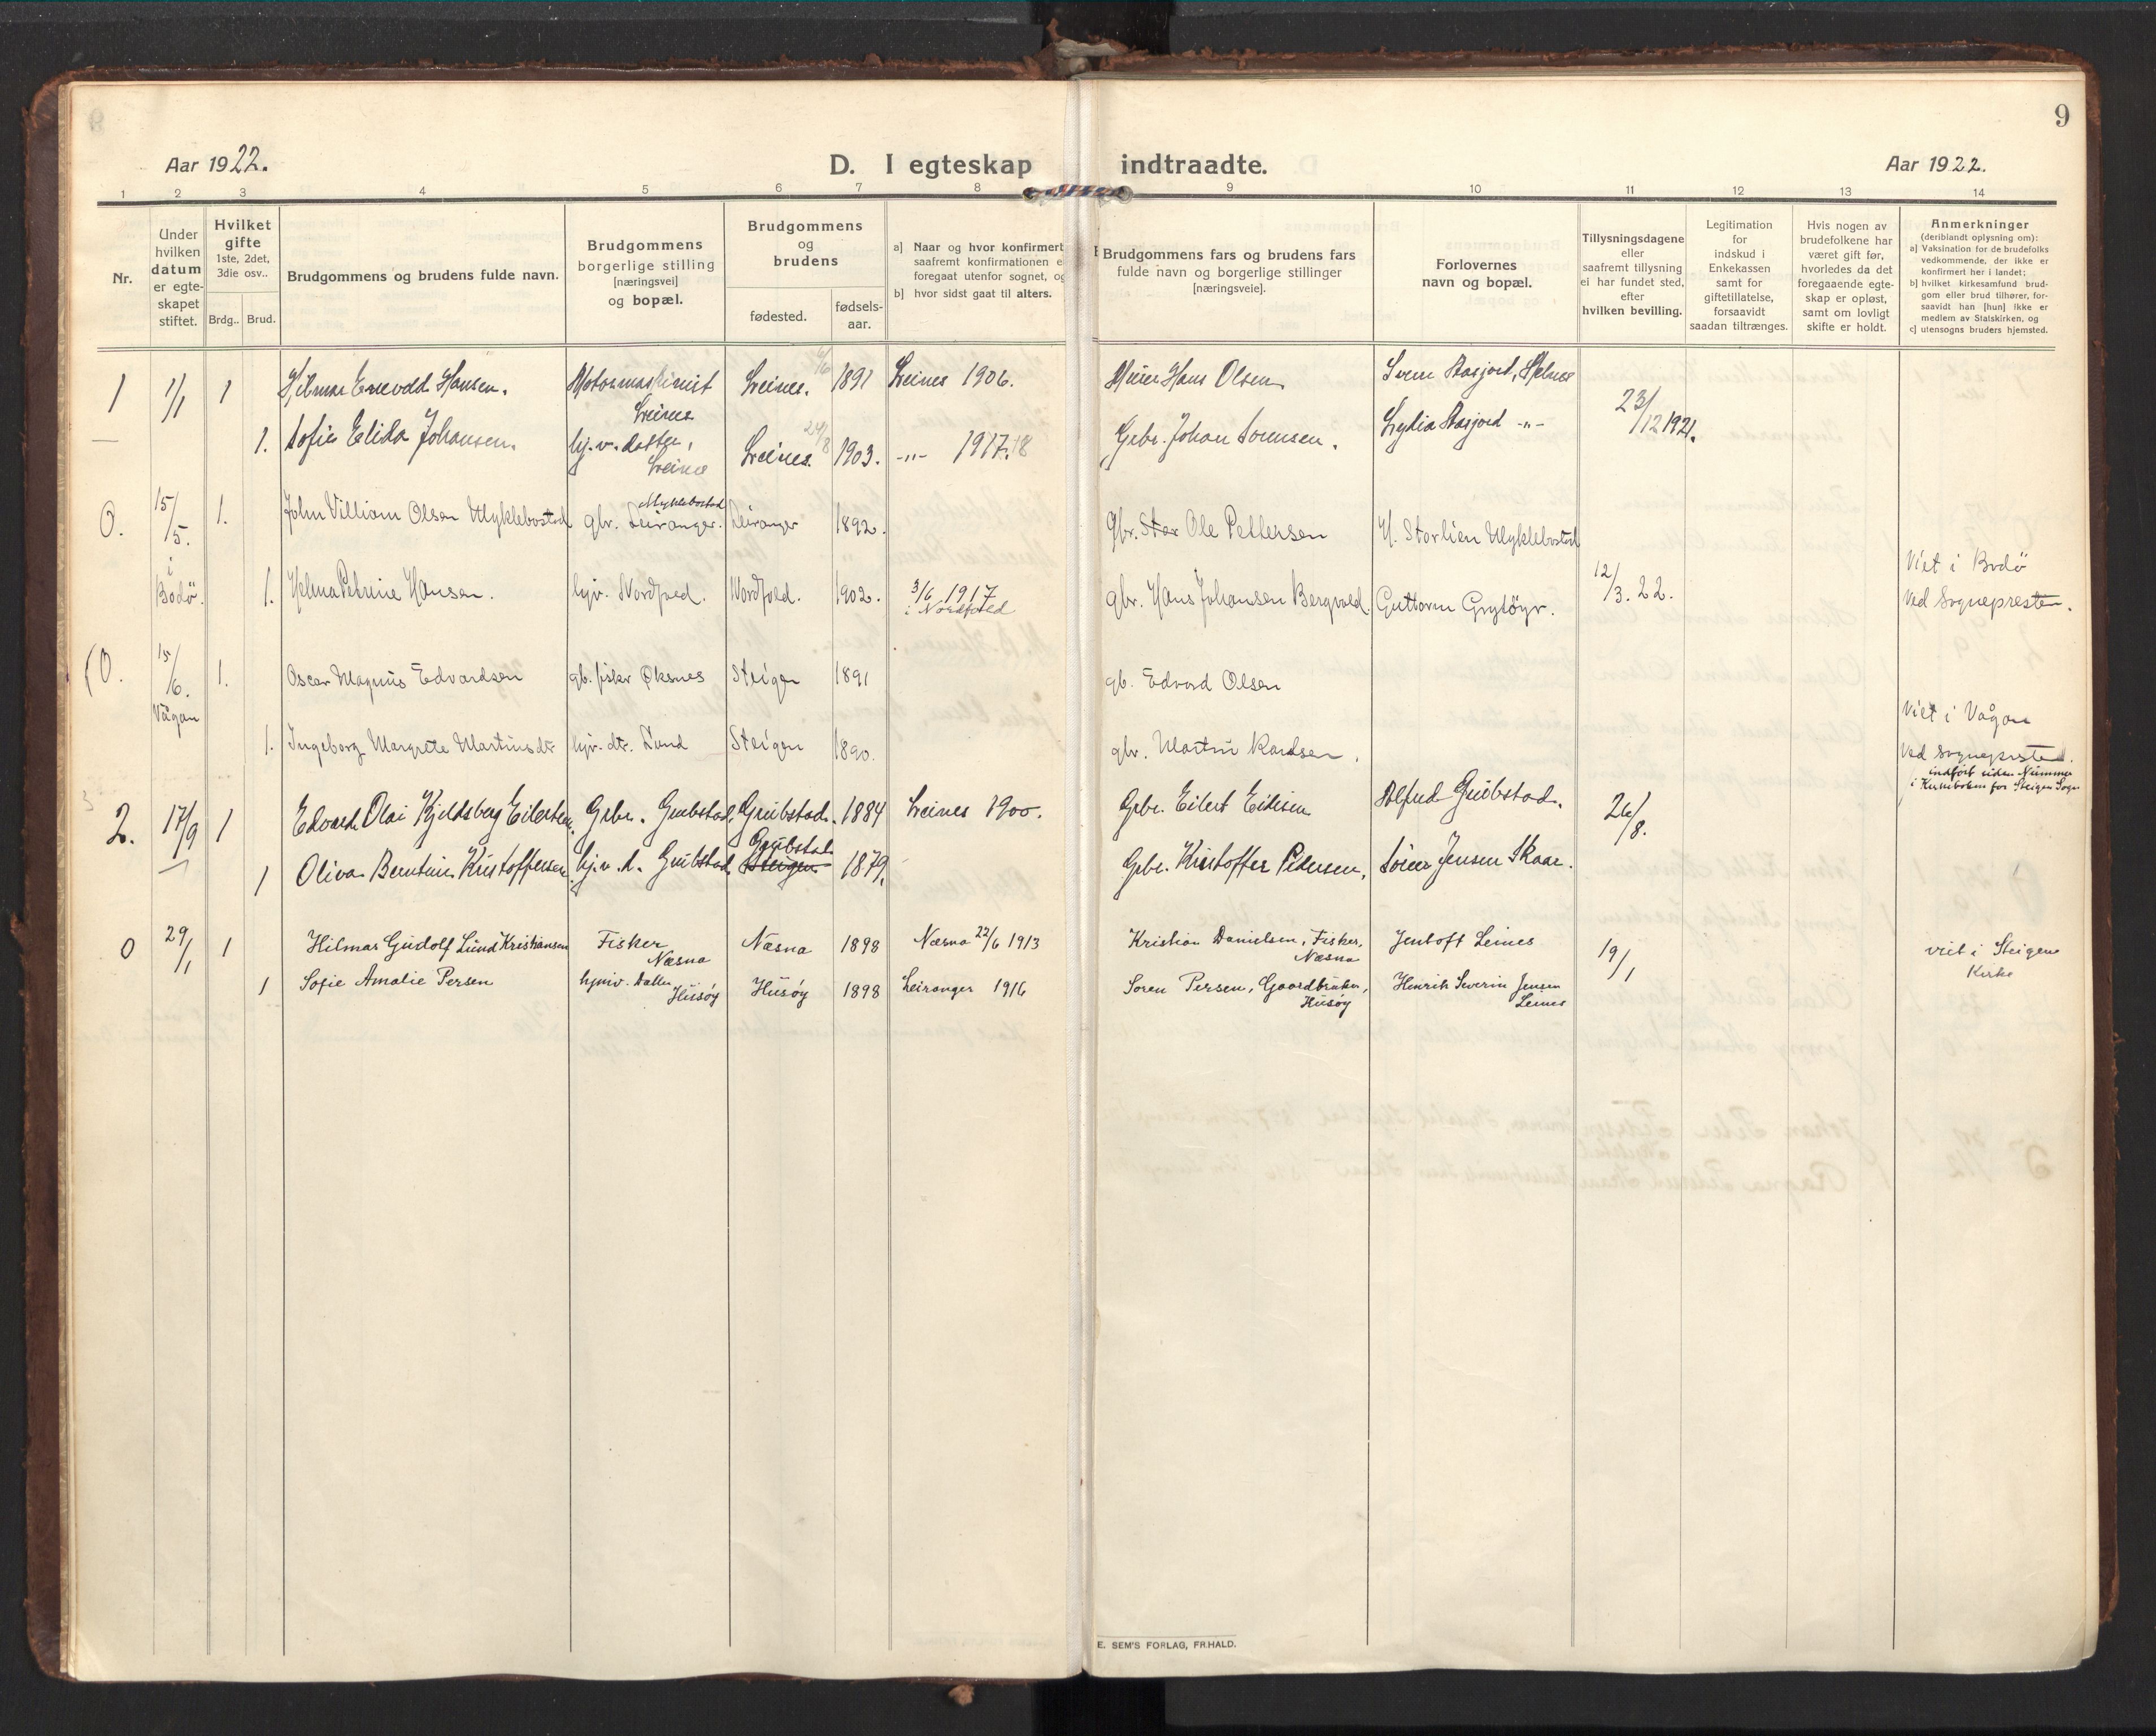 9
Aar 1922.
D. I egteskap indtraadte.
Aar 1922.
1 2 3 4 5 6 7 8 9 10 11 12 13 14
Nr.
Under
hvilken
datum
er egte-
skapet
stiftet.
Hvilket
gifte
1ste, 2det,
3die osv..
Brdg.. Brud.
Brudgommens og brudens fulde navn.
Brudgommens
borgerlige stilling
[næringsvei]
og bopæl.
Brudgommens
og
brudens
fødested.
fødsels-
aar.
a] Naar og hvor konfirmert
saafremt konfirmationen e
foregaat utenfor sognet, og
b] hvor sidst gaat til alters.
Brudgommens fars og brudens fars
fulde navn og borgerlige stillinger
[næringsveie].
Forlovernes
navn og bopæl.
Tillysningsdagene
eller
saafremt tillysning
ei har fundet sted,
efter
hvilken bevilling.
Legitimation
for
indskud i
Enkekassen
samt for
giftetillatelse,
forsaavidt
saadan tiltrænges.
Hvis nogen av
brudefolkene har
været gift før,
hvorledes da det
foregaaende egte-
skap er opløst,
samt om lovligt
skifte er holdt.
Anmerkninger
(deriblandt oplysning om):
a] Vaksination for de brudefolks
vedkommende, der ikke er
konfirmert her i landet;
b] hvilket kirkesamfund brud-
gom eller brud tilhører, for-
saavidt han [hun] ikke er
medlem av Statskirken, og
c] utensogns bruders hjemsted.
1 1/1 1 Hilmar Hansen. Motormaskinist Leines. 1891 Leines 1906. Hans Olsen
Leines
1. Sofie Elida Johansen. hj.v. datter, Leines. 24/8 1903. -"- 1917. Grbr. Johan Sørensen. Lydia Aasjord -"- 23/12 1921.
Leines
0. 15/5. 1. John Villiam Olsen Myklebostad gbr. Leiranger. Myklebostad Leiranger 1892. gbr. Ole Pettersen H. Storlien Myklebostad
i
Bodø. 1. Helma Petrine Hansen. hjv. Nordfold. Nordfold. 1902. 3/6 1917 gbr. Hans Johansen Bergvold. Guttorm Grytøyr. 12/3. 22. Viet i Bodø
i Nordfold ved Sognepresten.
0. 15/6. 1. Oscar Magnus Edvardsen gb. fisker Øksnes Steigen 1891 gb. Edvard Olsen
Vågan
1. Ingeborg Margrete Martinsdtr hjv. dtr. Lund Steigen 1890. gbr. Martin Viet i Vågan
ved sognepresten.
indført uden Nummer
i Kirkeboken for Steigen Sogn
2. 17/9 1 Edvard Olai Kjeldsberg Eilertsen. Grbr. Grubstad, Grubstad. 1884 Leines 1900. Grbr. Eilert Alfred Grubstad. 26/8.
1 Oliva Berntine Kristoffersen. hj.v. d. Grubstad Grubstad Steigen 1879. Grbr. Kristoffer Pedersen, Jensen Skaar.
0 29/1 1 Hilmar Gudolf Lund Kristiansen Fisker Næsna 1898 Næsna 22/6 1913 Kristian Danielsen, Fisker, Jentoft Leines 19/1 viet i Steigens
Næsna Næsna Kirke
1 Sofie Amalie Persen hjmv. Datter Husøy 1898 Leiranger 1916 Søren Persen, Gaardbruker, Henrik Severin Jensen
Husøy Husøy Leines
E. SEM'S FORLAG, FR.HALD.